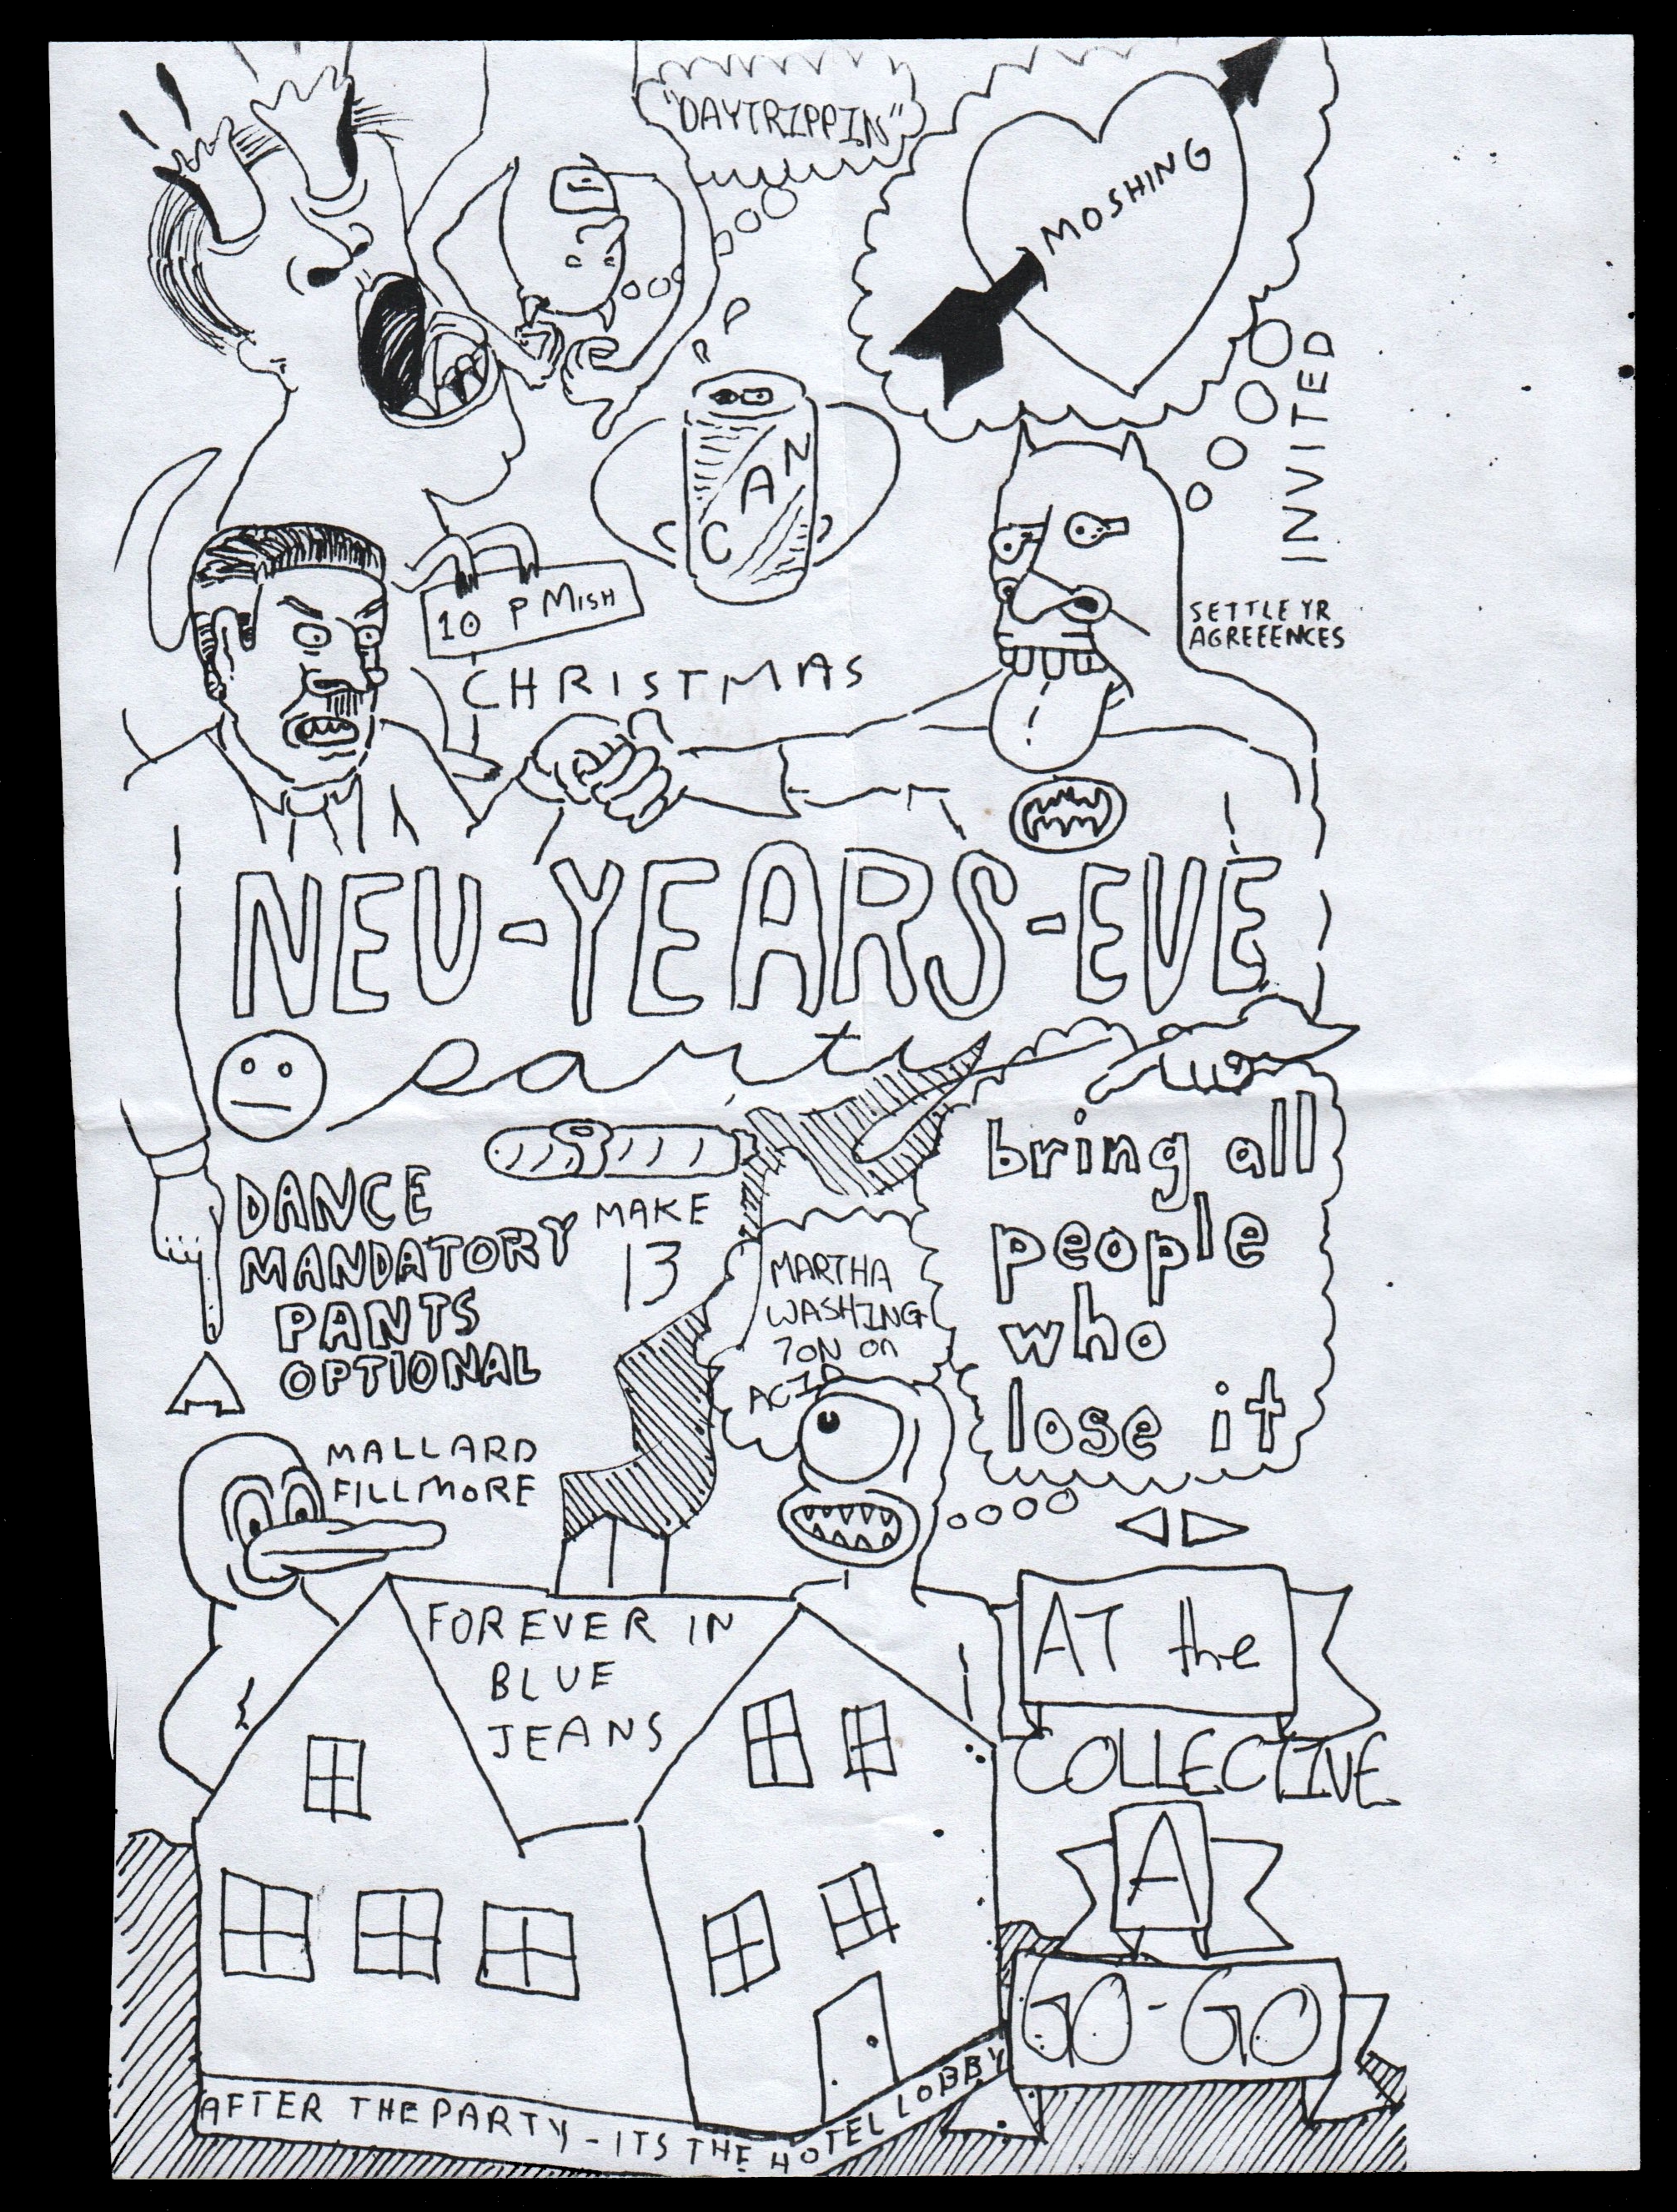 "DAYTRIPPIN"
MOSHING
INVITED
CAN
10 PMISH
SETTLE YR
AGREEENCES
CHRISTMAS
NEU-YEARS-EVE
party
DANCE
MANDATORY
PANTS
OPTIONAL
MAKE
13
MARTHA
WASHING
TON on
ACID
bring all
people
who
lose it
MALLARD
FILLMORE
FOREVER IN
BLUE
JEANS
AT the
COLLECTIVE
A
GO-GO
AFTER THE PARTY - ITS THE HOTEL LOBBY